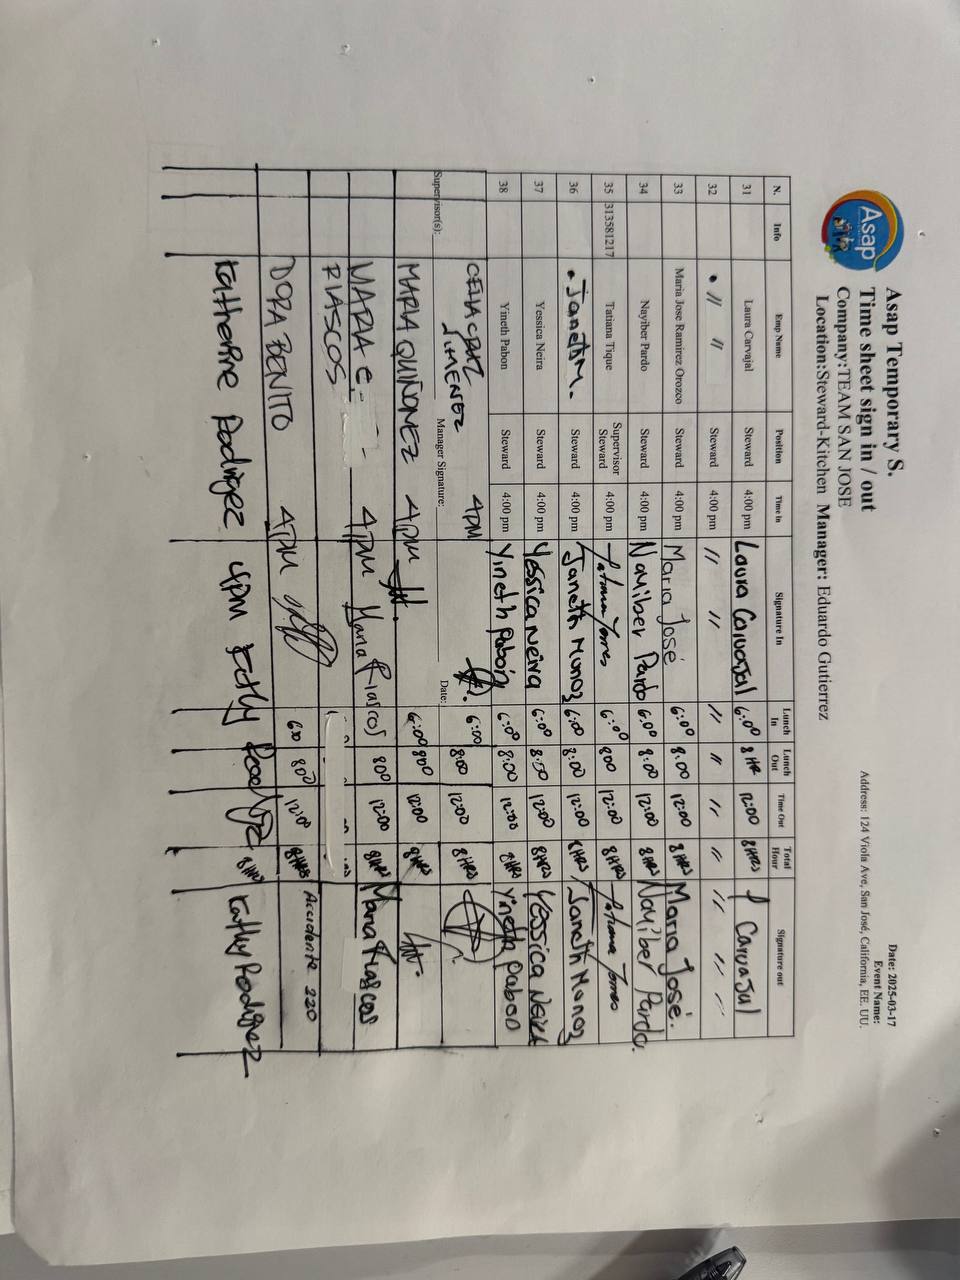 Asap
Asap Temporary S.
Time sheet sign in / out
Company:TEAM SAN JOSE
Location:Steward-Kitchen Manager: Eduardo Gutierrez
Date: 2025-03-17
Event Name:
Address: 124 Viola Ave, San José, California, EE. UU.
N. Info Emp Name Position Time in Signature In Lunch In Lunch Out Time Out Total Hour Signature out
31 Laura Carvajal Steward 4:00 pm Laura Carvajal 6:00 8 HR 12:00 8HRS L Carvajal
32 " " Steward 4:00 pm " " " " " " " " "
33 Maria Jose Ramirez Orozco Steward 4:00 pm Maria José 6:00 8:00 12:00 8HRS Maria José.
34 Nayiber Pardo Steward 4:00 pm Nayiber Pardo 6:00 8:00 12:00 8HRS Nayiber Pardo.
35 313581217 Tatiana Tique Supervisor Steward 4:00 pm Tatiana Torres 6:00 800 12:00 8HRS Tatiana Torres
36 . Janeth M. Steward 4:00 pm Janeth Munoz 6:00 8:00 12:00 8HRS Janeth Munoz
37 Yessica Neira Steward 4:00 pm Yessica Neira 6:00 8:00 12:00 8HRS Yessica Neira
38 Yineth Pabon Steward 4:00 pm Yineth Pabon 6:00 8:00 12:00 8HRS Yineth Pabon
CELIA CRUZ JIMENEZ 4PM 6:00 8:00 12:00 8HRS
Supervisor(s): Manager Signature: Date:
MARIA QUIÑONEZ 4PM 6:00 800 12:00 8HRS
MARIA E - - - 4PM Maria Riascos 800 12:00 8HRS Maria Riascos
RIASCOS
DORA BENITO 4PM 600 800 12:00 8HRS Accidente 220
Katherine Rodriguez 4PM Kathy Rodriguez 8HRS Kathy Rodriguez